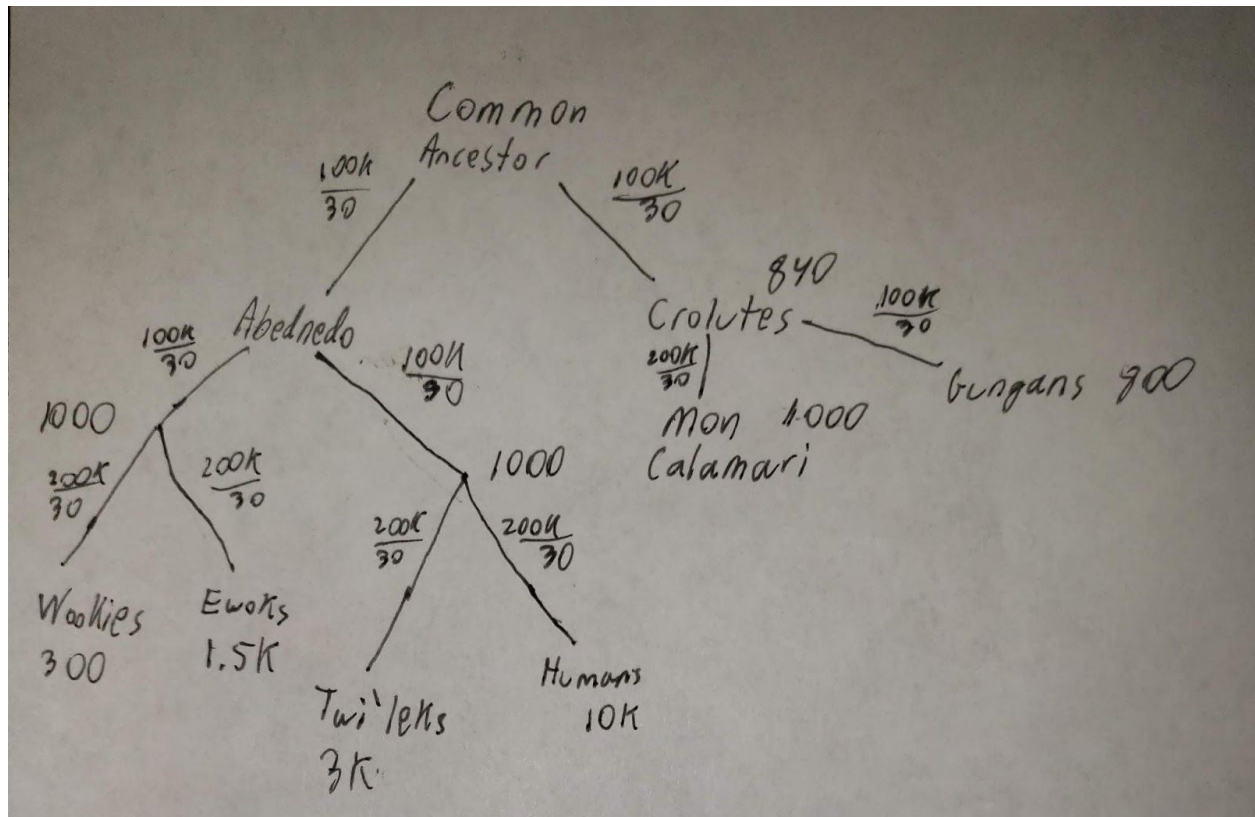 Common
Ancestor
100K
30
100K
30
Abednedo
Crolutes
840
100K
30
Gungans 900
100K
30
100K
30
200K
30
Mon 1000
Calamari
1000
200K
30
200K
30
1000
200K
30
200K
30
Wookies
300
Ewoks
1.5K
Twi'leks
3K
Humans
10K